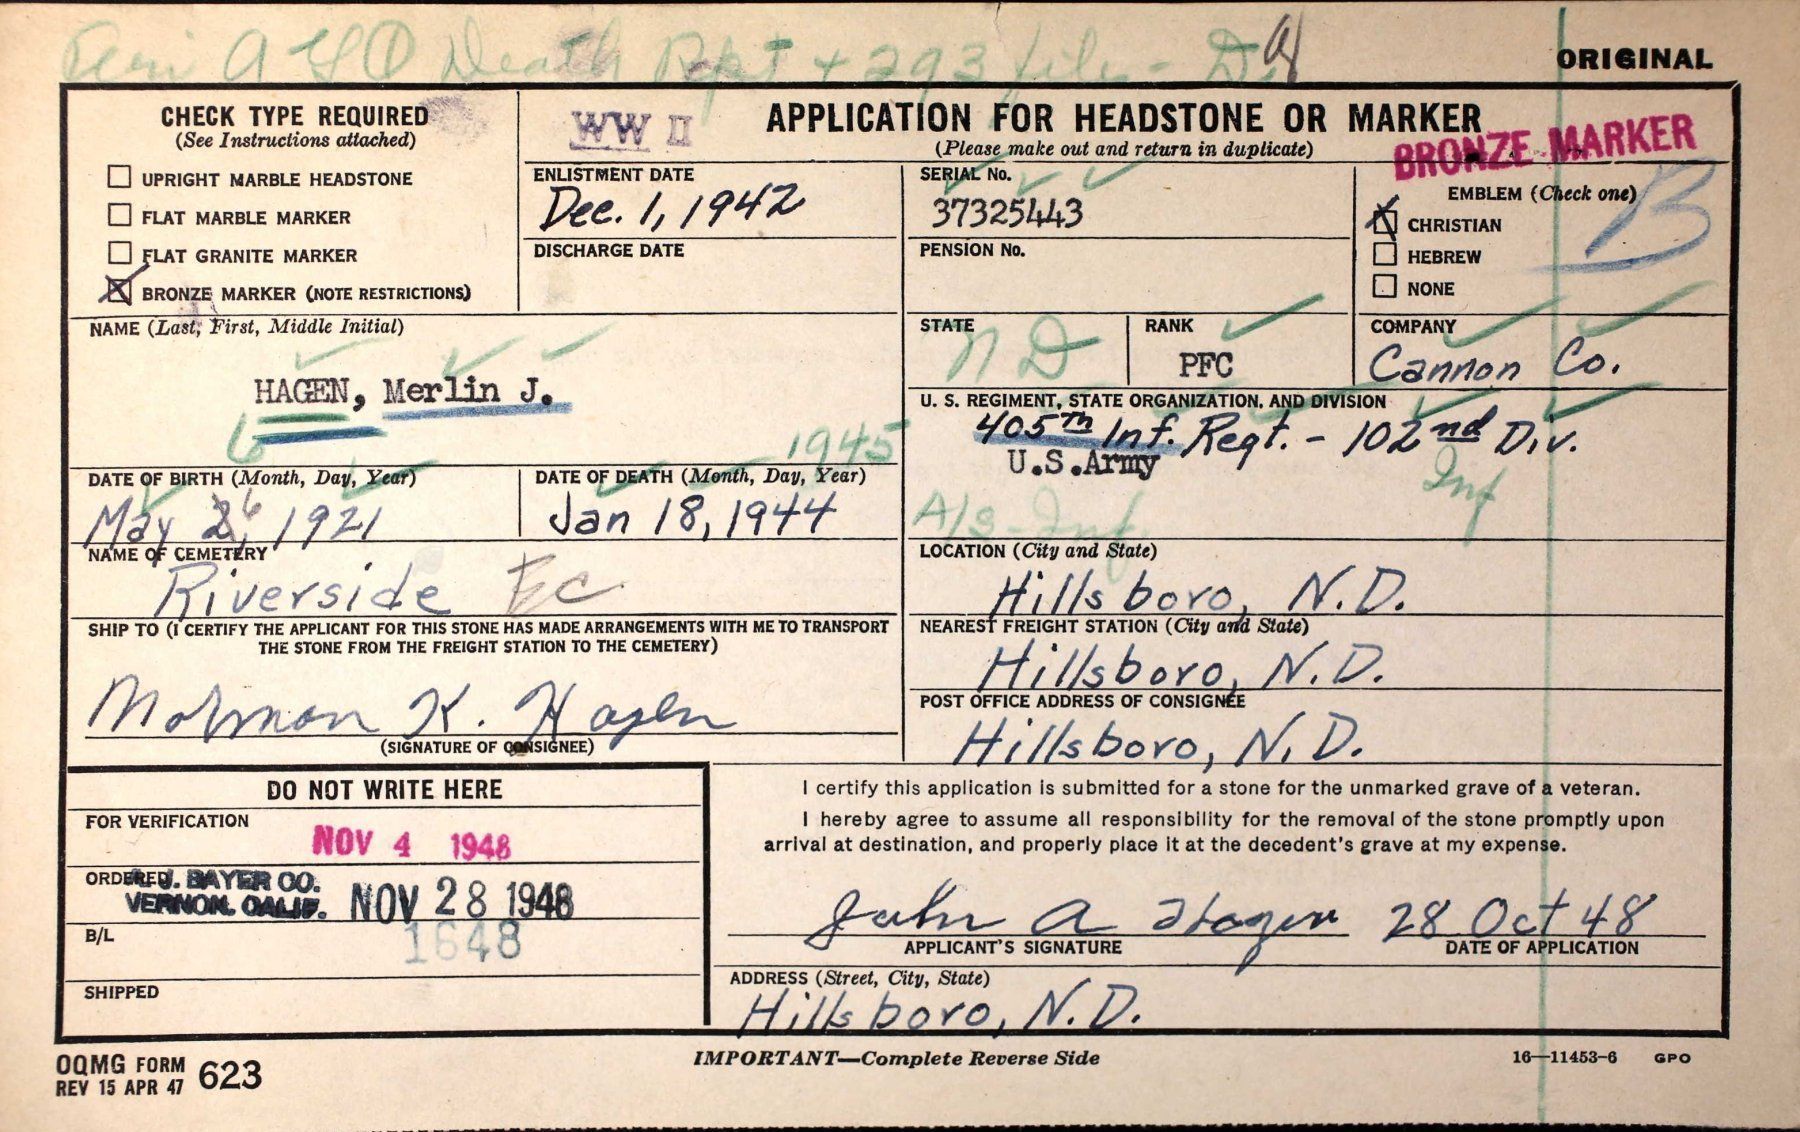 AGO Death Rpt + 293 file -
ORIGINAL
CHECK TYPE REQUIRED
(See Instructions attached)
UPRIGHT MARBLE HEADSTONE
FLAT MARBLE MARKER
FLAT GRANITE MARKER
BRONZE MARKER (NOTE RESTRICTIONS)
WW II
APPLICATION FOR HEADSTONE OR MARKER
(Please make out and return in duplicate)
BRONZE MARKER
ENLISTMENT DATE
Dec. 1, 1942
DISCHARGE DATE
SERIAL No.
37325443
PENSION No.
EMBLEM (Check one)
B
CHRISTIAN
HEBREW
NONE
NAME (Last, First, Middle Initial)
HAGEN, Merlin J.
STATE
ND
RANK
PFC
COMPANY
Cannon Co.
U. S. REGIMENT, STATE ORGANIZATION, AND DIVISION
405th Inf. Regt. - 102nd Div.
U.S.Army
Inf
A/S - Inf
6
1945
DATE OF BIRTH (Month, Day, Year)
May 26, 1921
DATE OF DEATH (Month, Day, Year)
Jan 18, 1944
NAME OF CEMETERY
Riverside
LOCATION (City and State)
Hillsboro, N.D.
SHIP TO (I CERTIFY THE APPLICANT FOR THIS STONE HAS MADE ARRANGEMENTS WITH ME TO TRANSPORT
THE STONE FROM THE FREIGHT STATION TO THE CEMETERY)
NEAREST FREIGHT STATION (City and State)
Hillsboro, N.D.
K. Hagen
(SIGNATURE OF CONSIGNEE)
POST OFFICE ADDRESS OF CONSIGNEE
Hillsboro, N.D.
DO NOT WRITE HERE
FOR VERIFICATION
NOV 4 1948
ORDERED
J. BAYER CO.
VERNON, CALIF.
NOV 28 1948
B/L
1648
SHIPPED
I certify this application is submitted for a stone for the unmarked grave of a veteran.
I hereby agree to assume all responsibility for the removal of the stone promptly upon
arrival at destination, and properly place it at the decedent's grave at my expense.
John A Hagen 28 Oct 48
APPLICANT'S SIGNATURE
DATE OF APPLICATION
ADDRESS (Street, City, State)
Hillsboro, N.D.
OQMG FORM
REV 15 APR 47 623
IMPORTANT—Complete Reverse Side
16—11453-6 GPO